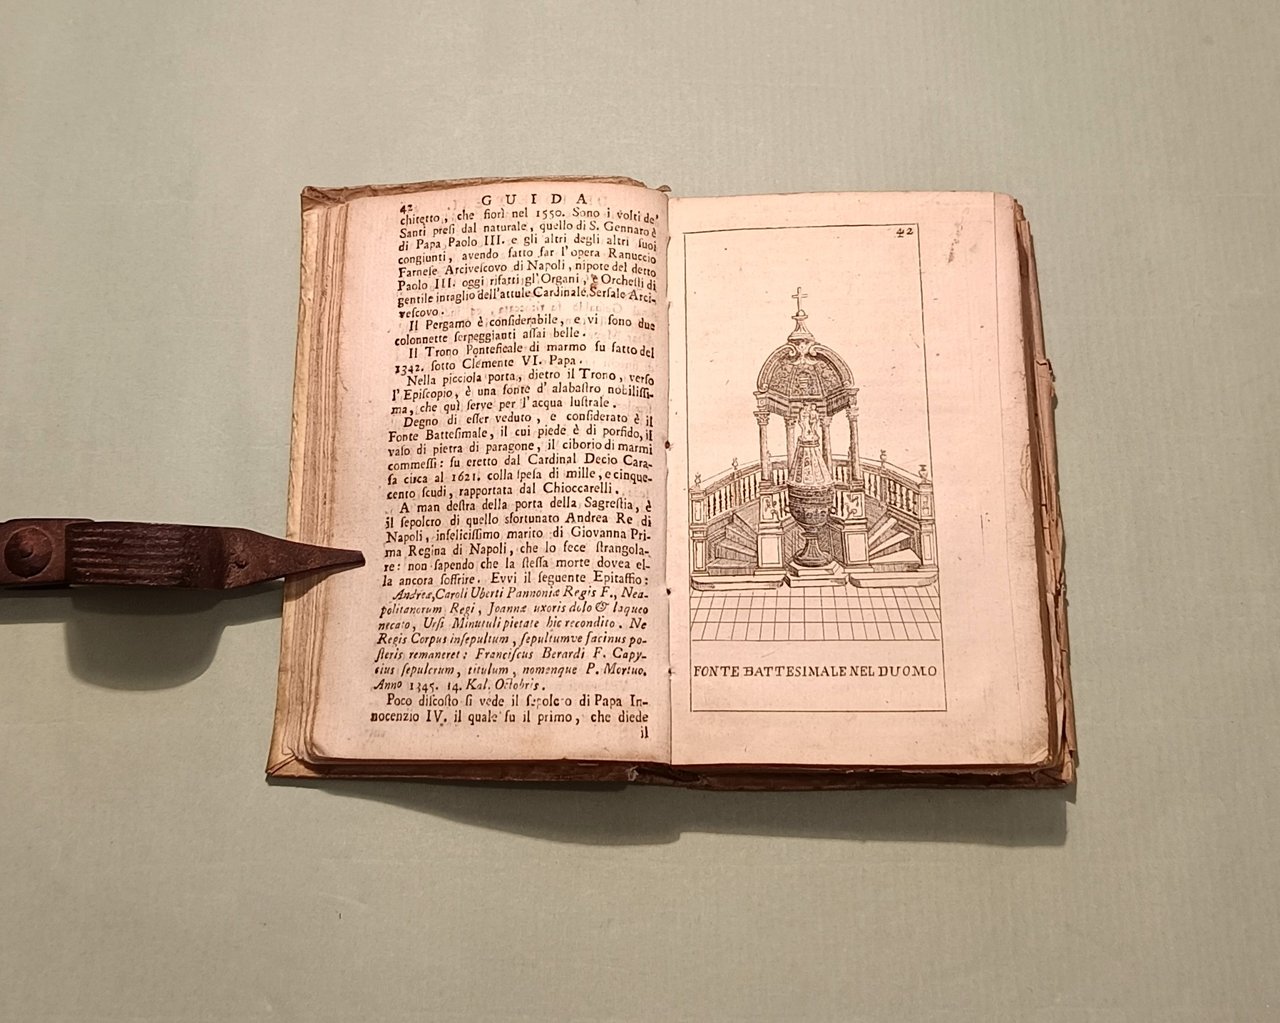 42
GUIDA
chitetto, che fiorì nel 1550. Sono i volti de'
Santi presi dal naturale, quello di S. Gennaro è
di Papa Paolo III. e gli altri degli altri suoi
congiunti, avendo fatto far l'opera Ranuccio
Farnese Arcivescovo di Napoli, nipote del detto
Paolo III. oggi rifatti gl'Organi, e Orchesti di
gentile intaglio dell'attule Cardinale Sersale Arci-
vescovo.
Il Pergamo è considerabile, e vi sono due
colonnette serpeggianti assai belle.
Il Trono Ponteficale di marmo fu fatto del
1342. sotto Clemente VI. Papa.
Nella picciola porta, dietro il Trono, verso
l'Episcopio, è una fonte d'alabastro nobilissi-
ma, che quì serve per l'acqua lustrale.
Degno di esser veduto, e considerato è il
Fonte Battesimale, il cui piede è di porfido, il
vaso di pietra di paragone, il ciborio di marmi
commessi: fu eretto dal Cardinal Decio Cara-
fa circa al 1621. colla spesa di mille, e cinque-
cento scudi, rapportata dal Chioccarelli.
A man destra della porta della Sagrestia, è
il sepolcro di quello sfortunato Andrea Re di
Napoli, infelicissimo marito di Giovanna Pri-
ma Regina di Napoli, che lo fece strangola-
re: non sapendo che la stessa morte dovea el-
la ancora soffrire. Evvi il seguente Epitaffio:
Andreæ, Caroli Uberti Pannoniæ Regis F., Nea-
politanorum Regi, Joannæ uxoris dolo & laqueo
necato, Ursi Minutuli pietate hic recondito. Ne
Regis Corpus insepultum, sepultumve facinus po-
steris remaneret: Franciscus Berardi F. Capy-
cius sepulcrum, titulum, nomenque P. Mortuo.
Anno 1345. 14. Kal. Octobris.
Poco discosto si vede il sepolcro di Papa In-
nocenzio IV. il quale fu il primo, che diede
il
42
FONTE BATTESIMALE NEL DUOMO